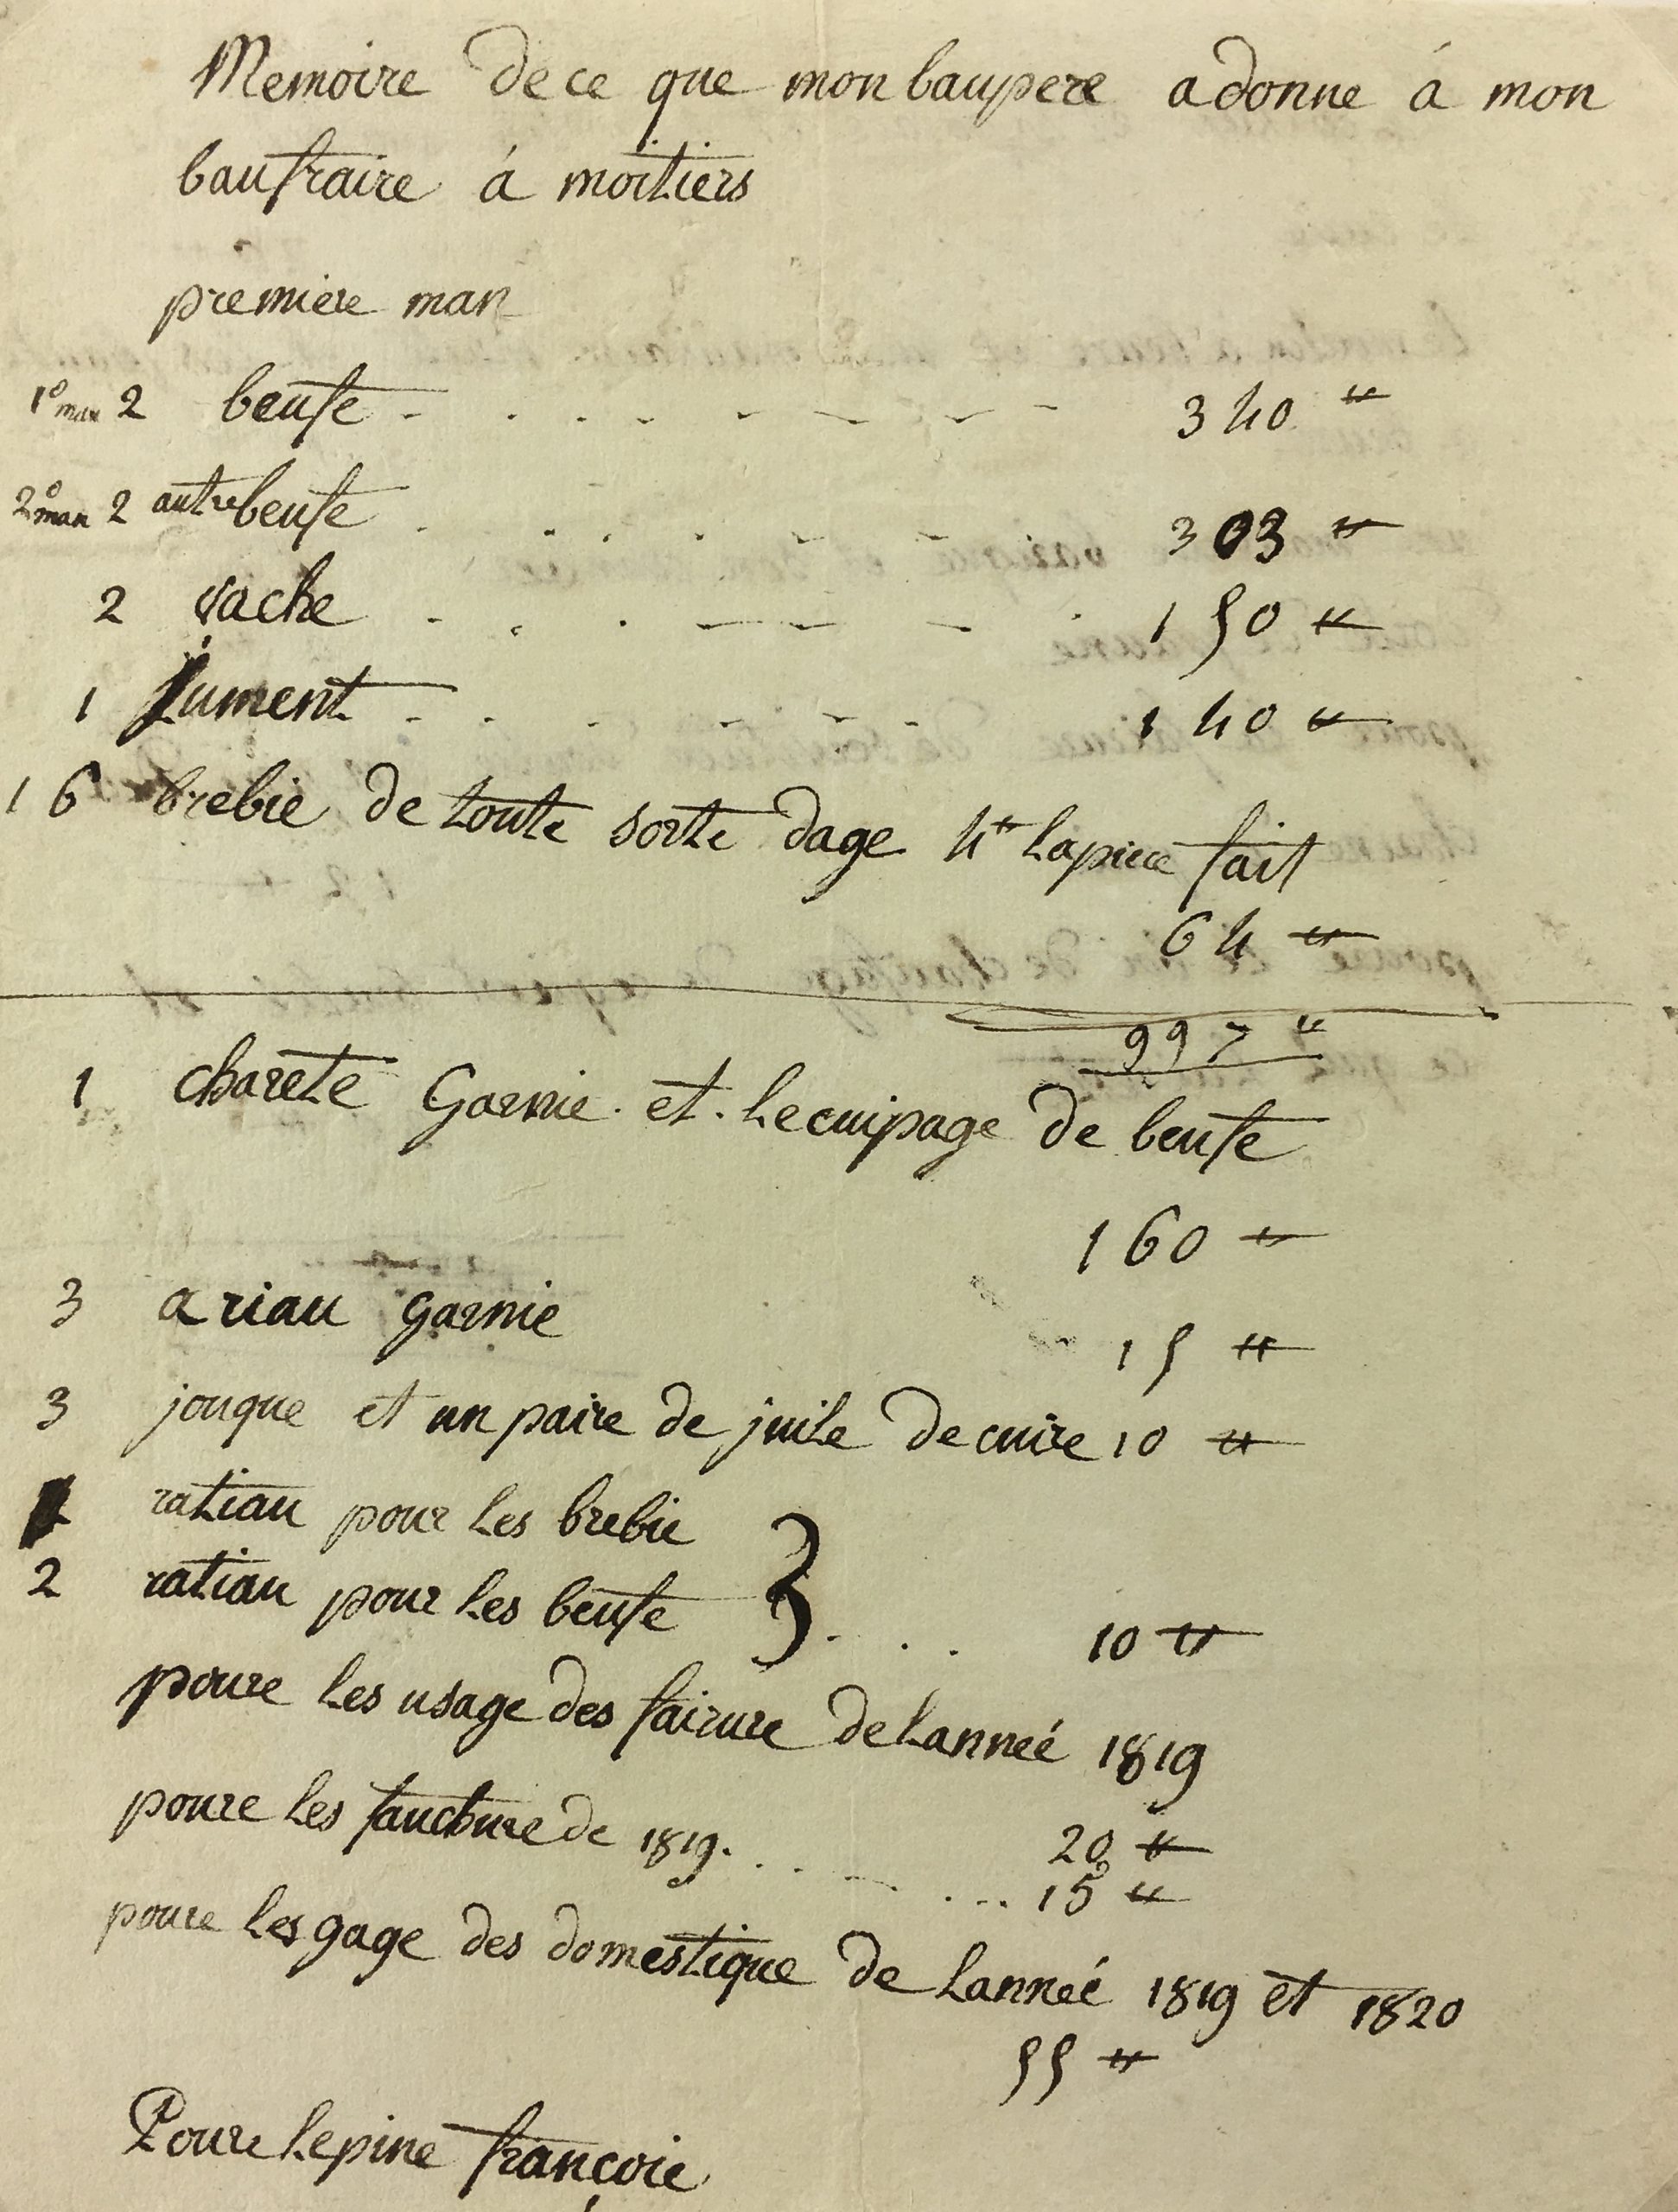 Memoire de ce que mon baupere a donne á mon
baufraire á moitiers
premiere man
1º man 2 beufe - . . . - - - - - 340 ₶
2º man 2 autre beufe . . . . . - - 303 ₶
2 vache - . . - - - . 150 ₶
1 jument - . . - - - 140 ₶
16 brebie de toute sorte dage 4₶ la piece fait
64 ₶
997 ₶
1 charete Garnie et lecuipage de beufe
160 ₶
3 ariau garnie
15 ₶
3 jouque et un paire de juile de cuire 10 ₶
ratiau pour les brebie
2 ratiau pour les beufe } . . . 10 ₶
poure les usage des fairure de lanneé 1819
20 ₶
poure les fauchure de 1819. . . - - ... 15 ₶
poure les gage des domestique de lanneé 1819 et 1820
55 ₶
Poure lepine françoie